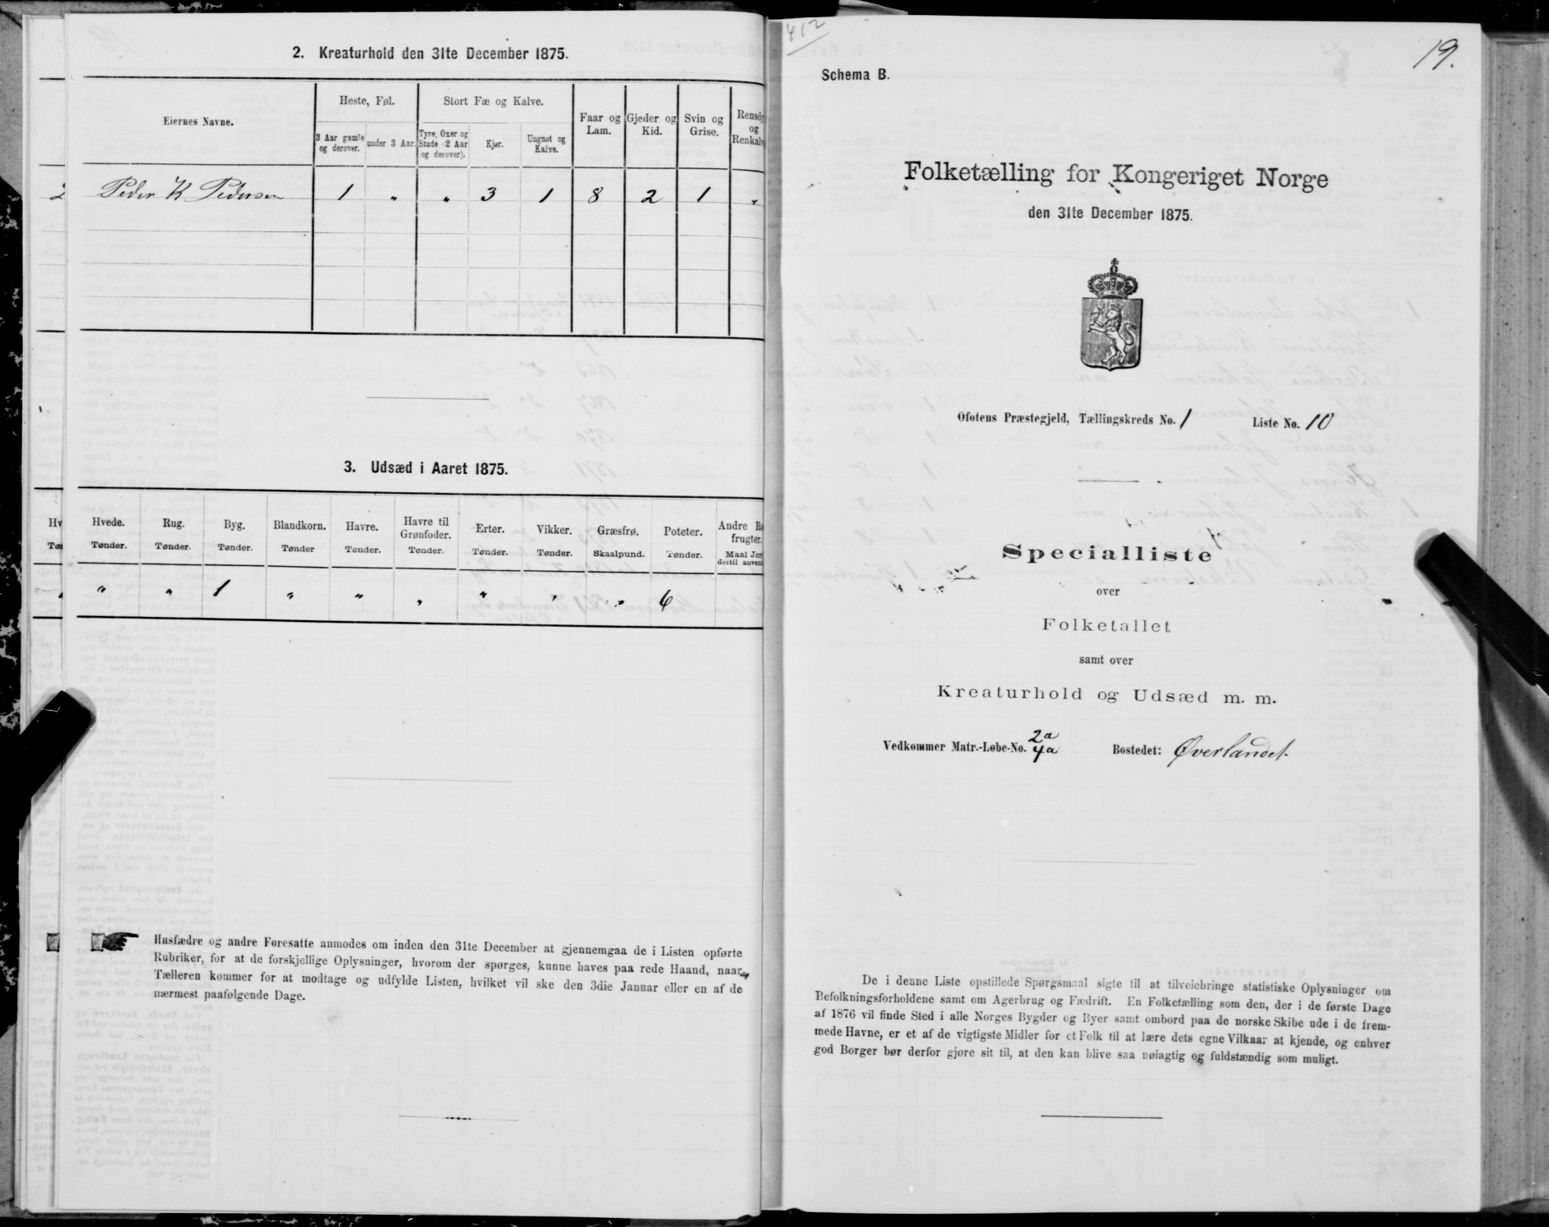 2. Kreaturhold den 31te December 1875.
Eiernes Navne.
Heste, Føl.
Stort Fæ og Kalve.
Faar og Lam.
Gjeder og Kid.
Svin og Grise.
Rensdy
og
Renkalv
3 Aar gamle og derover.
under 3 Aar.
Tyre, Oxer og Stude (2 Aar og derover).
Kjør.
Ungnøt og Kalve.
2 Peder K Pedersen 1 " " 3 1 8 2 1 "
3. Udsæd i Aaret 1875.
Hv
Hvede. Rug. Byg. Blandkorn. Havre. Havre til Grønfoder. Erter. Vikker. Græsfrø. Poteter. Andre Ro
frugter.
Tøn
Tønder. Tønder. Tønder. Tønder Tønder. Tønder. Tønder. Tønder. Skaalpund. Tønder. Maal Jor
dertil anvend
" " 1 " " " " " " 6
Husfædre og andre Foresatte anmodes om inden den 31te December at gjennemgaa de i Listen opførte
Rubriker, for at de forskjellige Oplysninger, hvorom der spørges, kunne haves paa rede Haand, naar
Tælleren kommer for at modtage og udfylde Listen, hvilket vil ske den 3die Januar eller en af de
nærmest paafølgende Dage.
412
19.
Schema B.
Folketælling for Kongeriget Norge
den 31te December 1875.
Ofotens Præstegjeld, Tællingskreds No. 1 Liste No. 10
Specialliste
over
Folketallet
samt over
Kreaturhold og Udsæd m. m.
2a
Vedkommer Matr.-Løbe-No. 4a Bostedet: Øverlandet.
De i denne Liste opstillede Spørgsmaal sigte til at tilveiebringe statistiske Oplysninger om
Befolkningsforholdene samt om Agerbrug og Fædrift. En Folketælling som den, der i de første Dage
af 1876 vil finde Sted i alle Norges Bygder og Byer samt ombord paa de norske Skibe ude i de frem-
mede Havne, er et af de vigtigste Midler for et Folk til at lære dets egne Vilkaar at kjende, og enhver
god Borger bør derfor gjøre sit til, at den kan blive saa nøiagtig og fuldstændig som muligt.